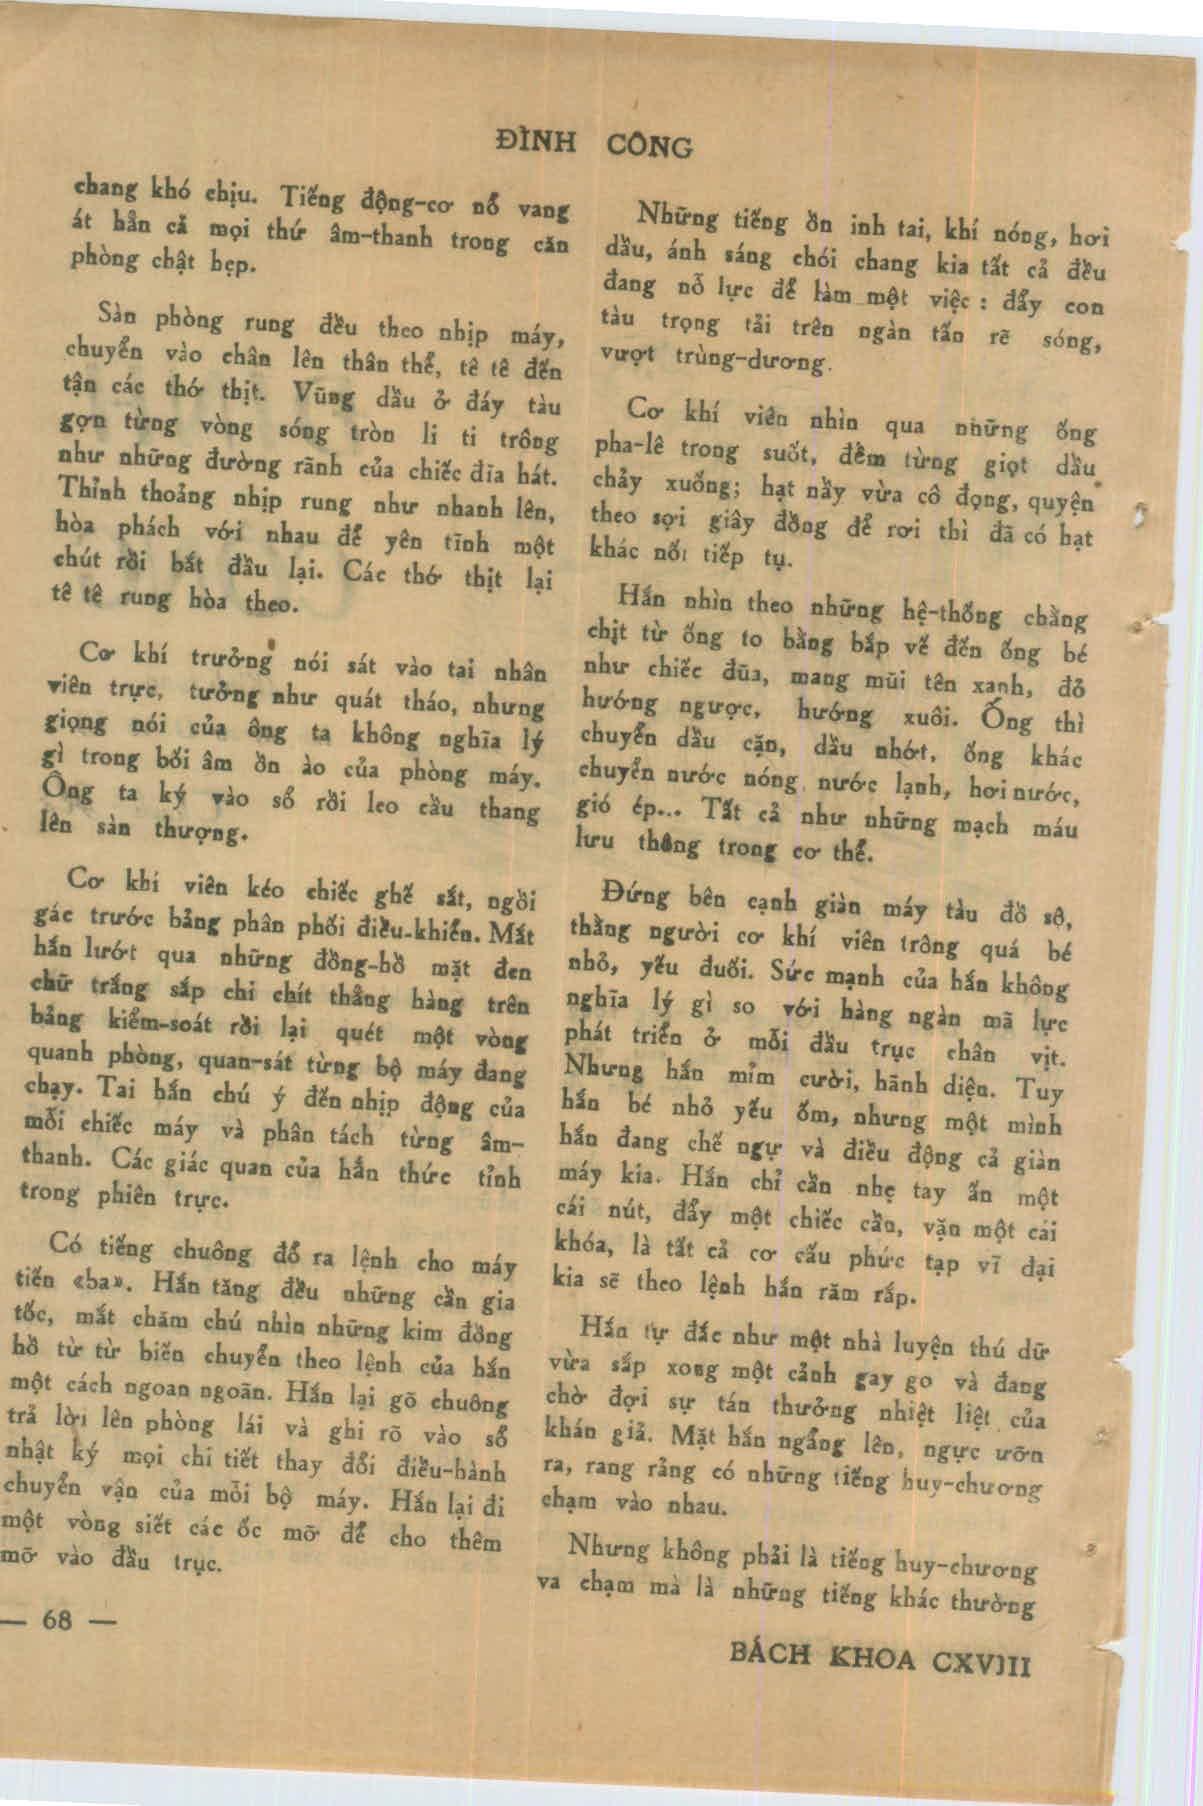 ĐÌNH CÔNG
chang khó chịu. Tiếng động-cơ nổ vang
át hẳn cả mọi thứ âm-thanh trong căn
phòng chật hẹp.
Sàn phòng rung đều theo nhịp máy,
chuyển vào chân lên thân thể, tê tê đến
tận các thớ thịt. Vũng dầu ở đáy tàu
gợn từng vòng sóng tròn li ti trông
như những đường rãnh của chiếc đĩa hát.
Thỉnh thoảng nhịp rung như nhanh lên,
hòa phách với nhau để yên tĩnh một
chút rồi bắt đầu lại. Các thớ thịt lại
tê tê rung hòa theo.
Cơ khí trưởng nói sát vào tai nhân
viên trực, tưởng như quát tháo, nhưng
giọng nói của ông ta không nghĩa lý
gì trong bối âm ồn ào của phòng máy.
Ông ta ký vào sổ rồi leo cầu thang
lên sàn thượng.
Cơ khí viên kéo chiếc ghế sắt, ngồi
gác trước bảng phân phối điều-khiển. Mắt
hắn lướt qua những đồng-hồ mặt đen
chữ trắng sắp chi chít thẳng hàng trên
bảng kiểm-soát rồi lại quét một vòng
quanh phòng, quan-sát từng bộ máy đang
chạy. Tai hắn chú ý đến nhịp động của
mỗi chiếc máy và phân tách từng âm-
thanh. Các giác quan của hắn thức tỉnh
trong phiên trực.
Có tiếng chuông đổ ra lệnh cho máy
tiến «ba». Hắn tăng đều những cần gia
tốc, mắt chăm chú nhìn những kim đồng
hồ từ từ biến chuyển theo lệnh của hắn
một cách ngoan ngoãn. Hắn lại gõ chuông
trả lời lên phòng lái và ghi rõ vào sổ
nhật ký mọi chi tiết thay đổi điều-hành
chuyển vận của mỗi bộ máy. Hắn lại đi
một vòng siết các ốc mỡ để cho thêm
mỡ vào đầu trục.
Những tiếng ồn inh tai, khí nóng, hơi
dầu, ánh sáng chói chang kia tất cả đều
đang nỗ lực để làm một việc : đẩy con
tàu trọng tải trên ngàn tấn rẽ sóng,
vượt trùng-dương.
Cơ khí viên nhìn qua những ống
pha-lê trong suốt, đếm từng giọt dầu
chảy xuống; hạt nầy vừa cô đọng, quyện
theo sợi giây đồng để rơi thì đã có hạt
khác nối tiếp tụ.
Hắn nhìn theo những hệ-thống chằng
chịt từ ống to bằng bắp vế đến ống bé
như chiếc đũa, mang mũi tên xanh, đỏ
hướng ngược, hướng xuôi. Ống thì
chuyển dầu cặn, dầu nhớt, ống khác
chuyển nước nóng, nước lạnh, hơi nước,
gió ép... Tất cả như những mạch máu
lưu thông trong cơ thể.
Đứng bên cạnh giàn máy tàu đồ sộ,
thằng người cơ khí viên trông quá bé
nhỏ, yếu đuối. Sức mạnh của hắn không
nghĩa lý gì so với hàng ngàn mã lực
phát triển ở mỗi đầu trục chân vịt.
Nhưng hắn mỉm cười, hãnh diện. Tuy
hắn bé nhỏ yếu ốm, nhưng một mình
hắn đang chế ngự và điều động cả giàn
máy kia. Hắn chỉ cần nhẹ tay ấn một
cái nút, đẩy một chiếc cần, vặn một cái
khóa, là tất cả cơ cấu phức tạp vĩ đại
kia sẽ theo lệnh hắn răm rắp.
Hắn tự đắc như một nhà luyện thú dữ
vừa sắp xong một cảnh gay go và đang
chờ đợi sự tán thưởng nhiệt liệt của
khán giả. Mặt hắn ngẩng lên, ngực ưỡn
ra, rang rảng có những tiếng huy-chương
chạm vào nhau.
Nhưng không phải là tiếng huy-chương
va chạm mà là những tiếng khác thường
— 68 —
BÁCH KHOA CXVIII